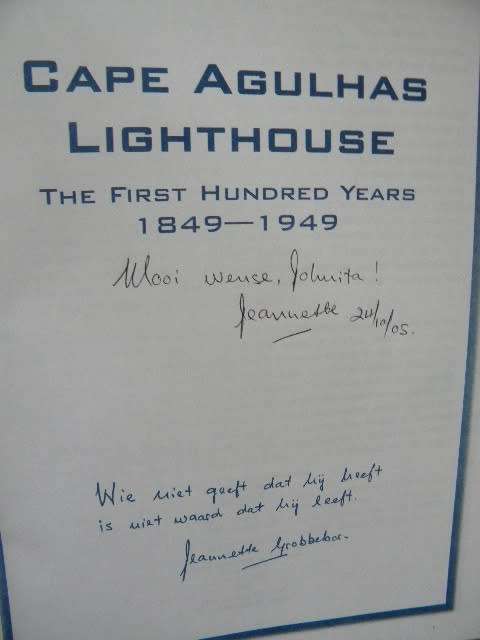 CAPE AGULHAS
LIGHTHOUSE
THE FIRST HUNDRED YEARS
1849—1949
Mooi wense, Johnita!
Jeannette 24/10/05.
Wie niet geeft dat hij heeft
is niet waard dat hij leeft.
Jeannette Grobbelaar.